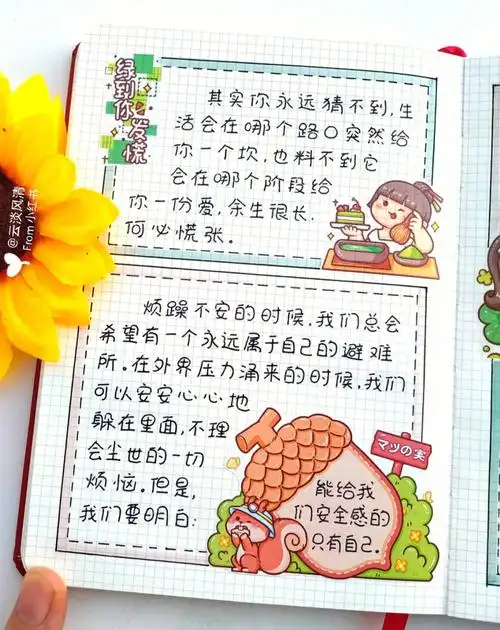 绿到你发慌
其实你永远猜不到,生
活会在哪个路口突然给
你一个坎,也料不到它
会在哪个阶段给
你一份爱,余生很长,
何必慌张。
烦躁不安的时候,我们总会
希望有一个永远属于自己的避难
所。在外界压力涌来的时候,我们
可以安安心心地
躲在里面,不理
会尘世的一切
烦恼。但是,
我们要明白:
マツの実
能给我
们安全感的
只有自己。
@云淡风清
From 小红书